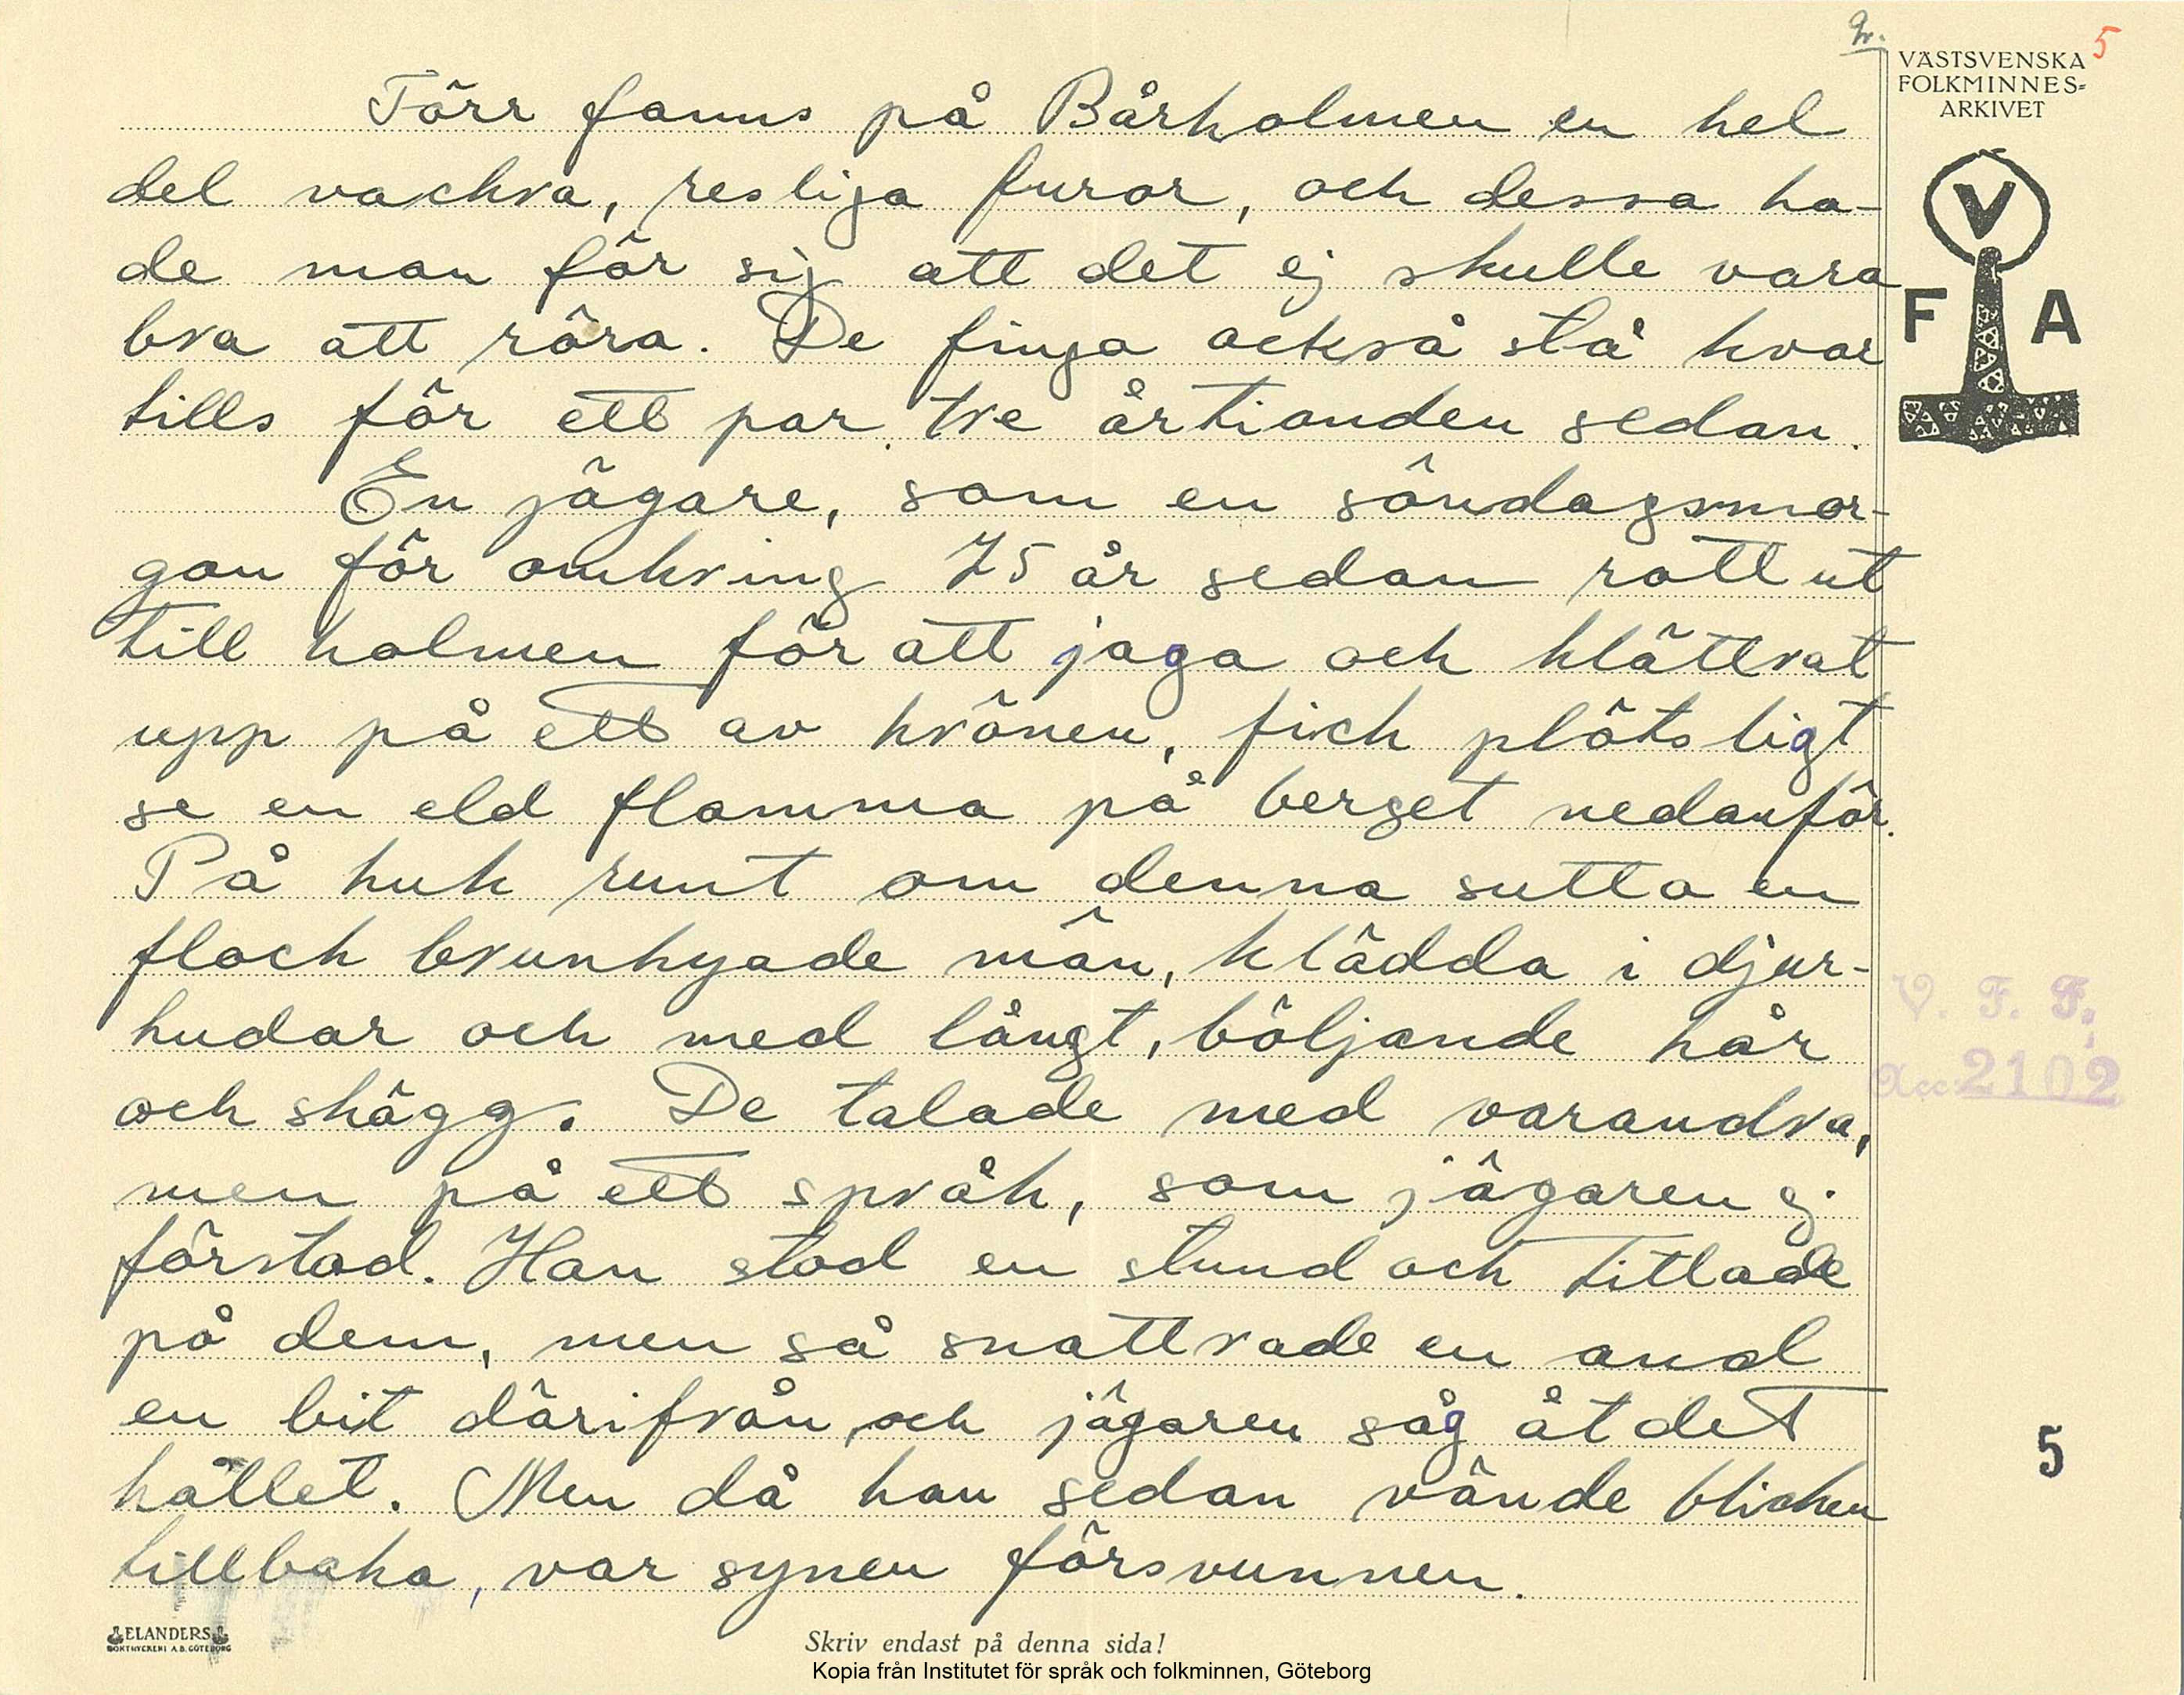 VÄSTSVENSKA
FOLKMINNES-
ARKIVET
5
V
F A
Förr fanns på Bårholmen en hel
del vackra, resliga furor, och dessa ha-
de man för sig att det ej skulle vara
bra att röra. De finga också stå kvar
tills för ett par tre årtionden sedan.
En jägare, som en söndagsmor-
gon för omkring 75 år sedan rott ut
till holmen för att jaga och klättrat
upp på ett av krönen, fick plötsligt
se en eld flamma på berget nedanför.
På huk runt om denna sutto en
flock brunhyade män, klädda i djur-
hudar och med långt, böljande hår
och skägg. De talade med varandra,
men på ett språk, som jägaren ej
förstod. Han stod en stund och tittade
på dem, men så snattrade en and
en bit därifrån, och jägaren såg åt det
hållet. Men då han sedan vände blicken
tillbaka, var synen försvunnen.
V. F. F.
Acc 2102
5
ELANDERS
BOKTRYCKERI A.B. GÖTEBORG
Skriv endast på denna sida!
Kopia från Institutet för språk och folkminnen, Göteborg